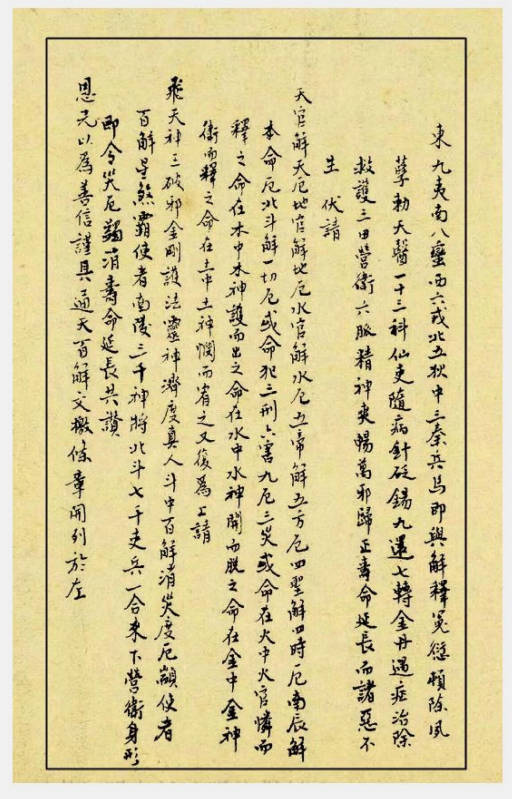 東九夷南八蠻西六戎北五狄中三秦兵馬即與解釋冤愆頓除夙
孽勅天醫一十三科仙吏隨病針砭錫九還七轉金丹遇症治除
救護三田營衛六脈精神爽暢萬邪歸正壽命延長而諸惡不
生伏請
天官解天厄地官解地厄水官解水厄五帝解五方厄四聖解四時厄南辰解
本命厄北斗解一切厄或命犯三刑六害九厄三災或命在火中火官憐而
釋之命在木中木神護而出之命在水中水神開而脫之命在金中金神
衛而釋之命在土中土神憫而宥之又復爲上請
飛天神王破邪金剛護法靈神濟度真人斗中百解消災度厄顯使者
百解星煞霸使者南陵三千神將北斗七千吏兵一合來下營衛身形
即令災厄蠲消壽命延長共讚
恩光以爲善信謹具通天百解文檄條章開列於左